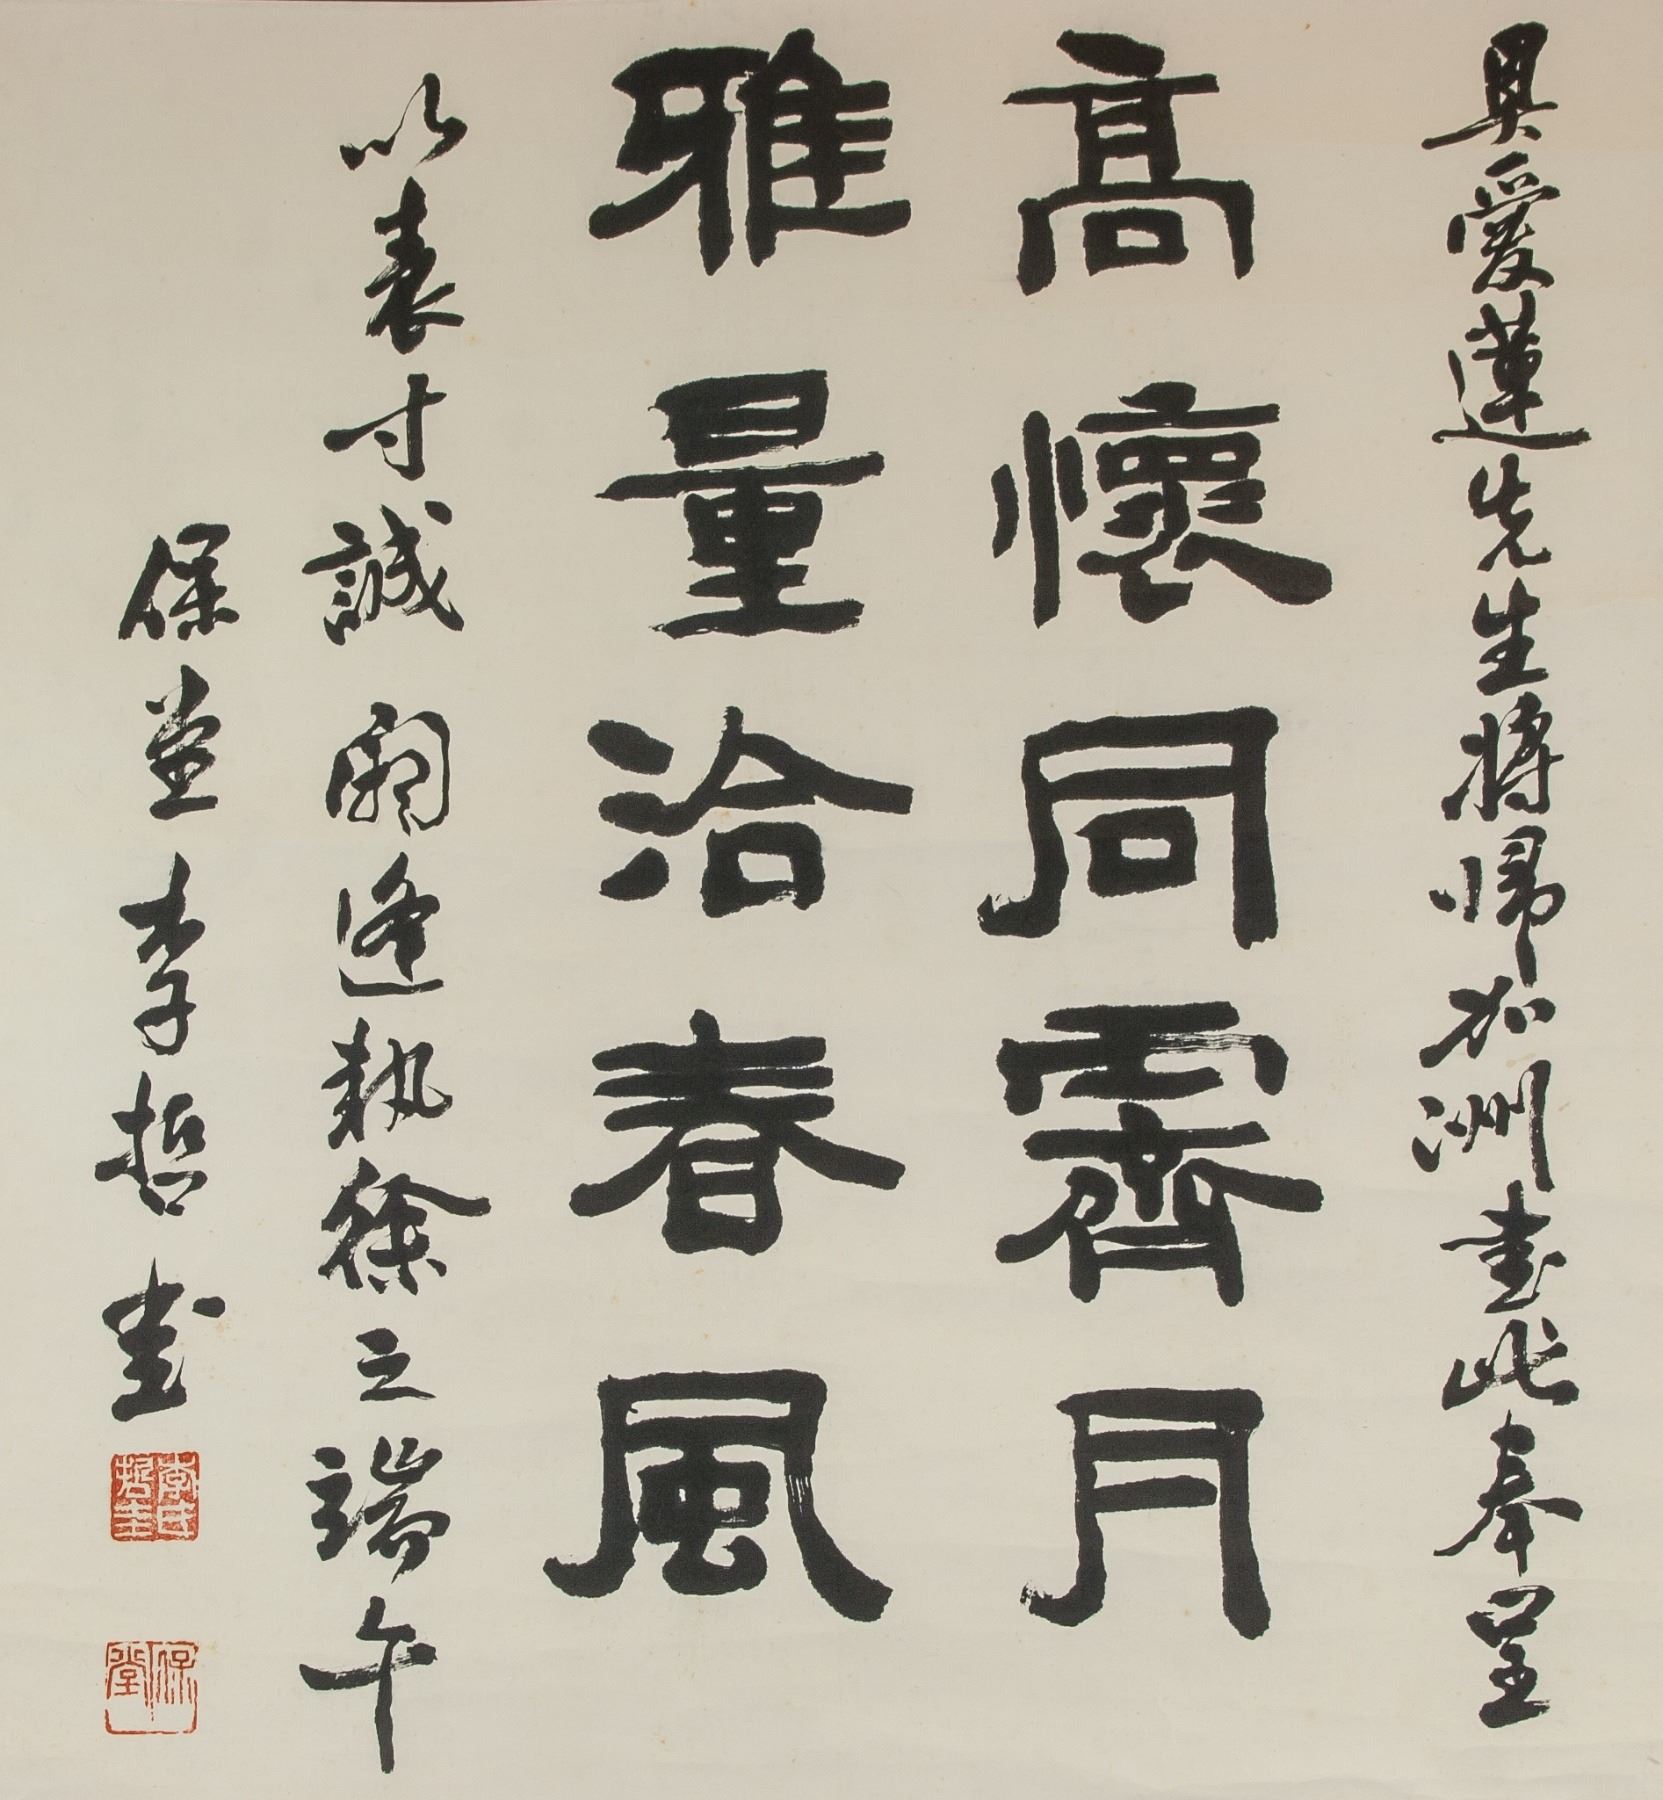 具愛蓮先生將歸加洲書此奉呈
高懷同霽月
雅量洽春風
以表寸誠 閼逢執徐之端午
保堂李哲圭
李氏哲圭
保堂